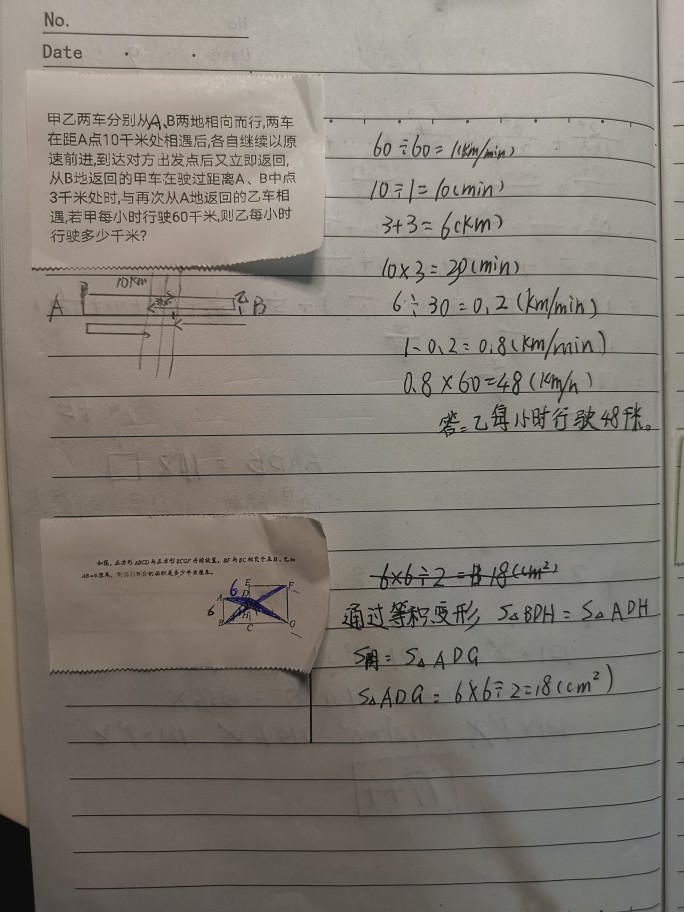 No.
Date
甲乙两车分别从A、B两地相向而行,两车
在距A点10千米处相遇后,各自继续以原
速前进,到达对方出发点后又立即返回,
从B地返回的甲车在驶过距离A、B中点
3千米处时,与再次从A地返回的乙车相
遇,若甲每小时行驶60千米,则乙每小时
行驶多少千米?
10km
A
B
60÷60=1(km/min)
10÷1=10(min)
3+3=6(km)
10×3=30(min)
6÷30=0.2(km/min)
1-0.2=0.8(km/min)
0.8×60=48(km/h)
答:乙每小时行驶48千米。
如图,正方形ABCD与正方形ECGF并排放置,BF与EC相交于点H,已知
AB=6厘米,则阴影部分的面积是多少平方厘米。
6
E
F
A
D
6
H
B
C
G
6×6÷2=18(cm²)
通过等积变形 S△BDH=S△ADH
S阴=S△ADG
S△ADG=6×6÷2=18(cm²)